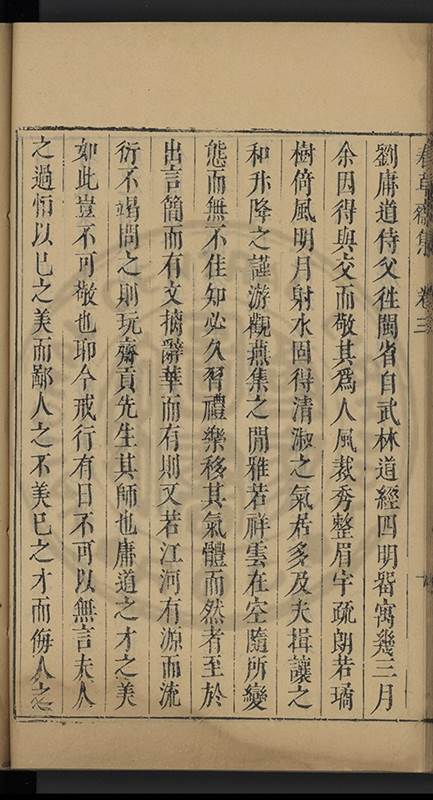 春草齋集 卷三
劉庸道侍父徃閩省自武林道經四明畱寓幾三月
余因得與交而敬其爲人風裁秀整眉宇疏朗若璚
樹倚風明月射水固得清淑之氣若多及夫揖讓之
和升降之謹游觀燕集之閒雅若祥雲在空隨所變
態而無不佳知必久習禮樂移其氣體而然者至於
出言簡而有文摛辭華而有則又若江河有源而流
衍不竭問之則玩齋貢先生其師也庸道之才之美
如此豈不可敬也耶今戒行有日不可以無言夫人
之過恒以已之美而鄙人之不美已之才而侮人之